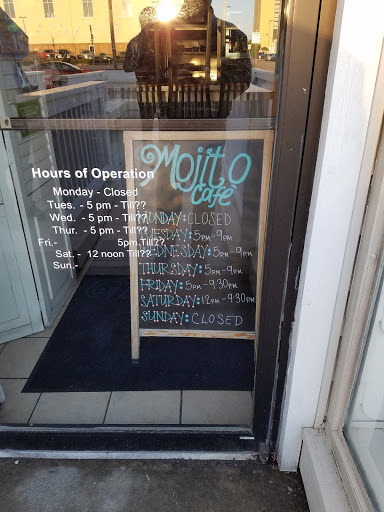 Hours of Operation
Monday - Closed
Tues. - 5 pm - Till??
Wed. - 5 pm - Till??
Thur. - 5 pm - Till??
Fri.- 5pm.Till??
Sat. - 12 noon Till??
Sun.-
Mojito
Café
MONDAY: CLOSED
TUESDAY: 5PM-9PM
WEDNESDAY: 5PM-9PM
THURSDAY: 5PM-9PM
FRIDAY: 5PM-9:30PM
SATURDAY: 12PM-9:30PM
SUNDAY: CLOSED